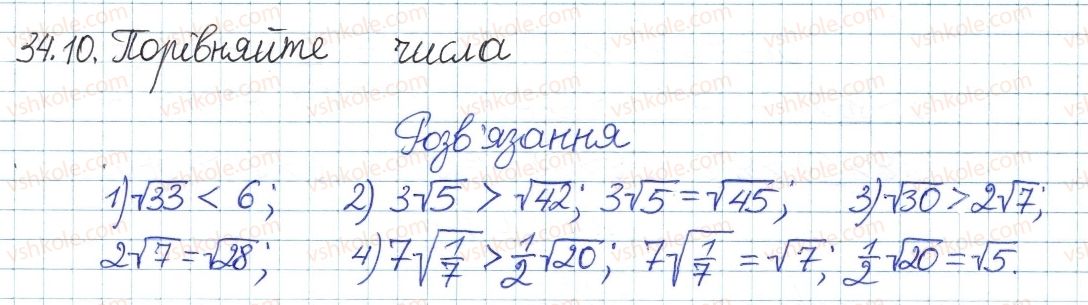 34.10. Порівняйте числа
Розв'язання
1) √33 < 6; 2) 3√5 > √42; 3√5 = √45; 3) √30 > 2√7;
2√7 = √28; 4) 7√(1/7) > 1/2 √20; 7√(1/7) = √7; 1/2 √20 = √5.